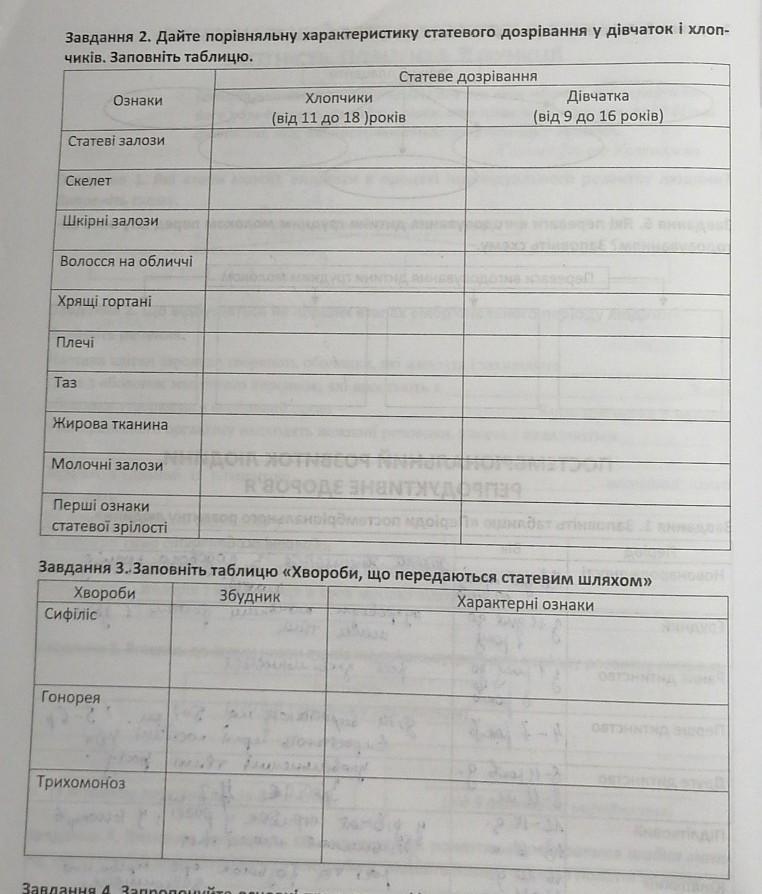 Завдання 2. Дайте порівняльну характеристику статевого дозрівання у дівчаток і хлоп-
чиків. Заповніть таблицю.
Ознаки
Статеве дозрівання
Хлопчики
(від 11 до 18 )років
Дівчатка
(від 9 до 16 років)
Статеві залози
Скелет
Шкірні залози
Волосся на обличчі
Хрящі гортані
Плечі
Таз
Жирова тканина
Молочні залози
Перші ознаки
статевої зрілості
Завдання 3. Заповніть таблицю «Хвороби, що передаються статевим шляхом»
Хвороби
Збудник
Характерні ознаки
Сифіліс
Гонорея
Трихомоноз
Завдання 4. Запропонуйте основні